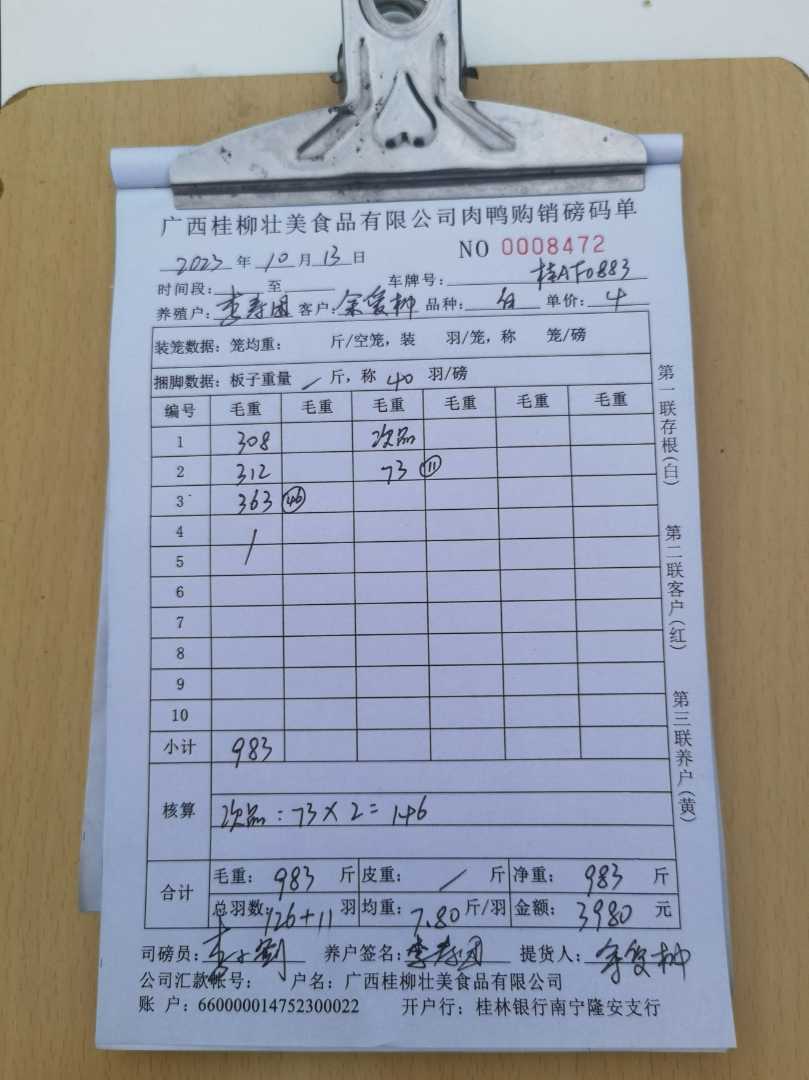 广西桂柳壮美食品有限公司肉鸭购销磅码单
NO 0008472
2023 年 10 月 13 日
时间段: 至 车牌号: 桂AF0883
养殖户: 李寿团 客户: 余爱柳 品种: 白 单价: 4
装笼数据: 笼均重: 斤/空笼, 装 羽/笼, 称 笼/磅
捆脚数据: 板子重量 / 斤, 称 40 羽/磅
编号 毛重 毛重 毛重 毛重 毛重 毛重
1 308 次品
2 312 73 ⑪
3 363 ㊻
4 /
5
6
7
8
9
10
小计 983
核算 次品: 73×2=146
合计 毛重: 983 斤 皮重: / 斤 净重: 983 斤
总羽数: 126+11 羽 均重: 7.80 斤/羽 金额: 3980 元
司磅员: 养户签名: 李寿团 提货人: 余爱柳
公司汇款帐号: 户名: 广西桂柳壮美食品有限公司
账 户: 660000014752300022 开户行: 桂林银行南宁隆安支行
第一联存根(白) 第二联客户(红) 第三联养户(黄)